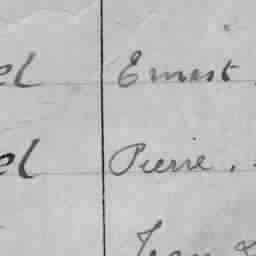 el Ernest
el Pierre.
Jean